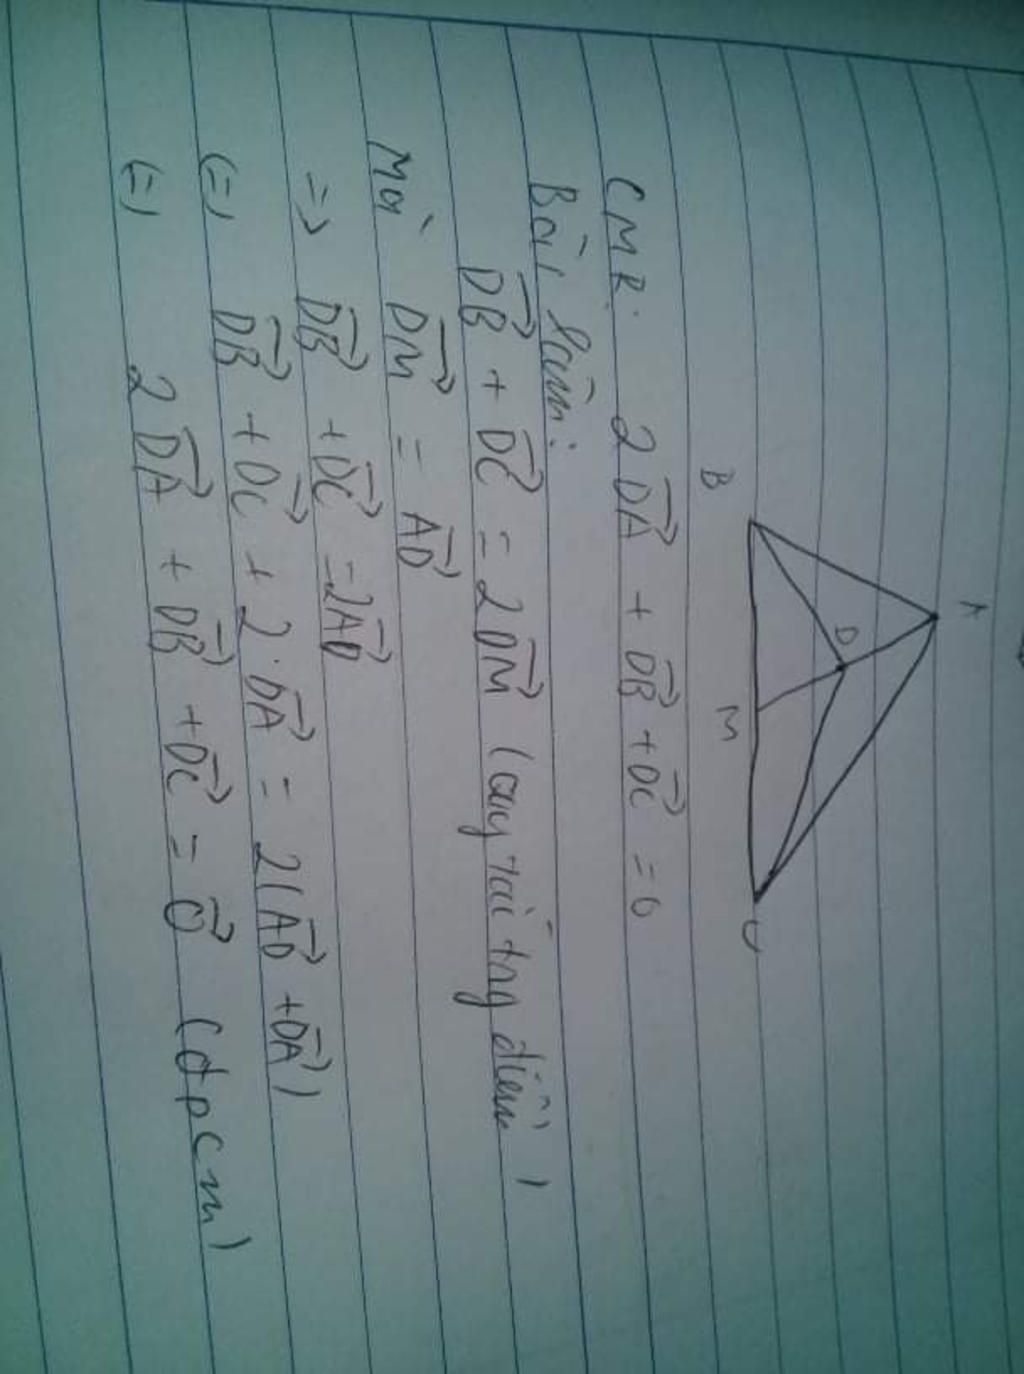 A
D
B M C
CMR: 2DA⃗ + DB⃗ + DC⃗ = 0
Bài làm:
DB⃗ + DC⃗ = 2DM⃗ (quy tắc trung điểm)
Mà DM⃗ = AD⃗
=> DB⃗ + DC⃗ = 2AD⃗
(=) DB⃗ + DC⃗ + 2.DA⃗ = 2(AD⃗ + DA⃗)
(=) 2DA⃗ + DB⃗ + DC⃗ = 0⃗ (đpcm)